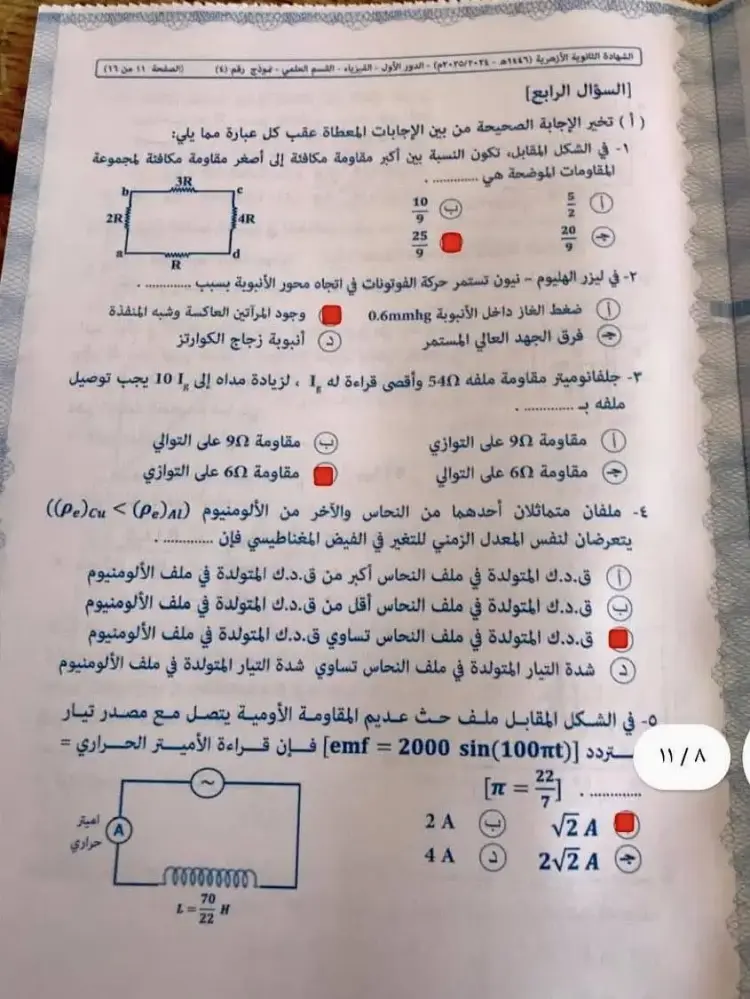 الشهادة الثانوية الأزهرية (١٤٤٦هـ - ٢٠٢٥/٢٠٢٤م) - الدور الأول - الفيزياء - القسم العلمي - نموذج رقم (٤) (الصفحة ١١ من ١٦)
[السؤال الرابع]
( أ ) تخير الإجابة الصحيحة من بين الإجابات المعطاة عقب كل عبارة مما يلي:
١- في الشكل المقابل، تكون النسبة بين أكبر مقاومة مكافئة إلى أصغر مقاومة مكافئة لمجموعة
المقاومات الموضحة هي ............ .
أ 5/2 ب 10/9
جـ 20/9 25/9
3R
b c
2R 4R
a d
R
٢- في ليزر الهليوم - نيون تستمر حركة الفوتونات في اتجاه محور الأنبوبة بسبب ............ .
أ ضغط الغاز داخل الأنبوبة 0.6mmhg وجود المرآتين العاكسة وشبه المنفذة
جـ فرق الجهد العالي المستمر د أنبوبة زجاج الكوارتز
٣- جلفانوميتر مقاومة ملفه 54Ω وأقصى قراءة له Ig ، لزيادة مداه إلى 10 Ig يجب توصيل
ملفه بـ ............ .
أ مقاومة 9Ω على التوازي ب مقاومة 9Ω على التوالي
جـ مقاومة 6Ω على التوالي مقاومة 6Ω على التوازي
٤- ملفان متماثلان أحدهما من النحاس والآخر من الألومنيوم ((ρe)Cu < (ρe)Al)
يتعرضان لنفس المعدل الزمني للتغير في الفيض المغناطيسي فإن ............ .
أ ق.د.ك المتولدة في ملف النحاس أكبر من ق.د.ك المتولدة في ملف الألومنيوم
ب ق.د.ك المتولدة في ملف النحاس أقل من ق.د.ك المتولدة في ملف الألومنيوم
ق.د.ك المتولدة في ملف النحاس تساوي ق.د.ك المتولدة في ملف الألومنيوم
د شدة التيار المتولدة في ملف النحاس تساوي شدة التيار المتولدة في ملف الألومنيوم
٥- في الشكل المقابل ملف حث عديم المقاومة الأومية يتصل مع مصدر تيار
متردد [emf = 2000 sin(100πt)] فإن قراءة الأميتر الحراري =
............ . [π = 22/7]
√2 A ب 2 A
جـ 2√2 A د 4 A
اميتر
حراري
A
L = 70/22 H
١١ / ٨